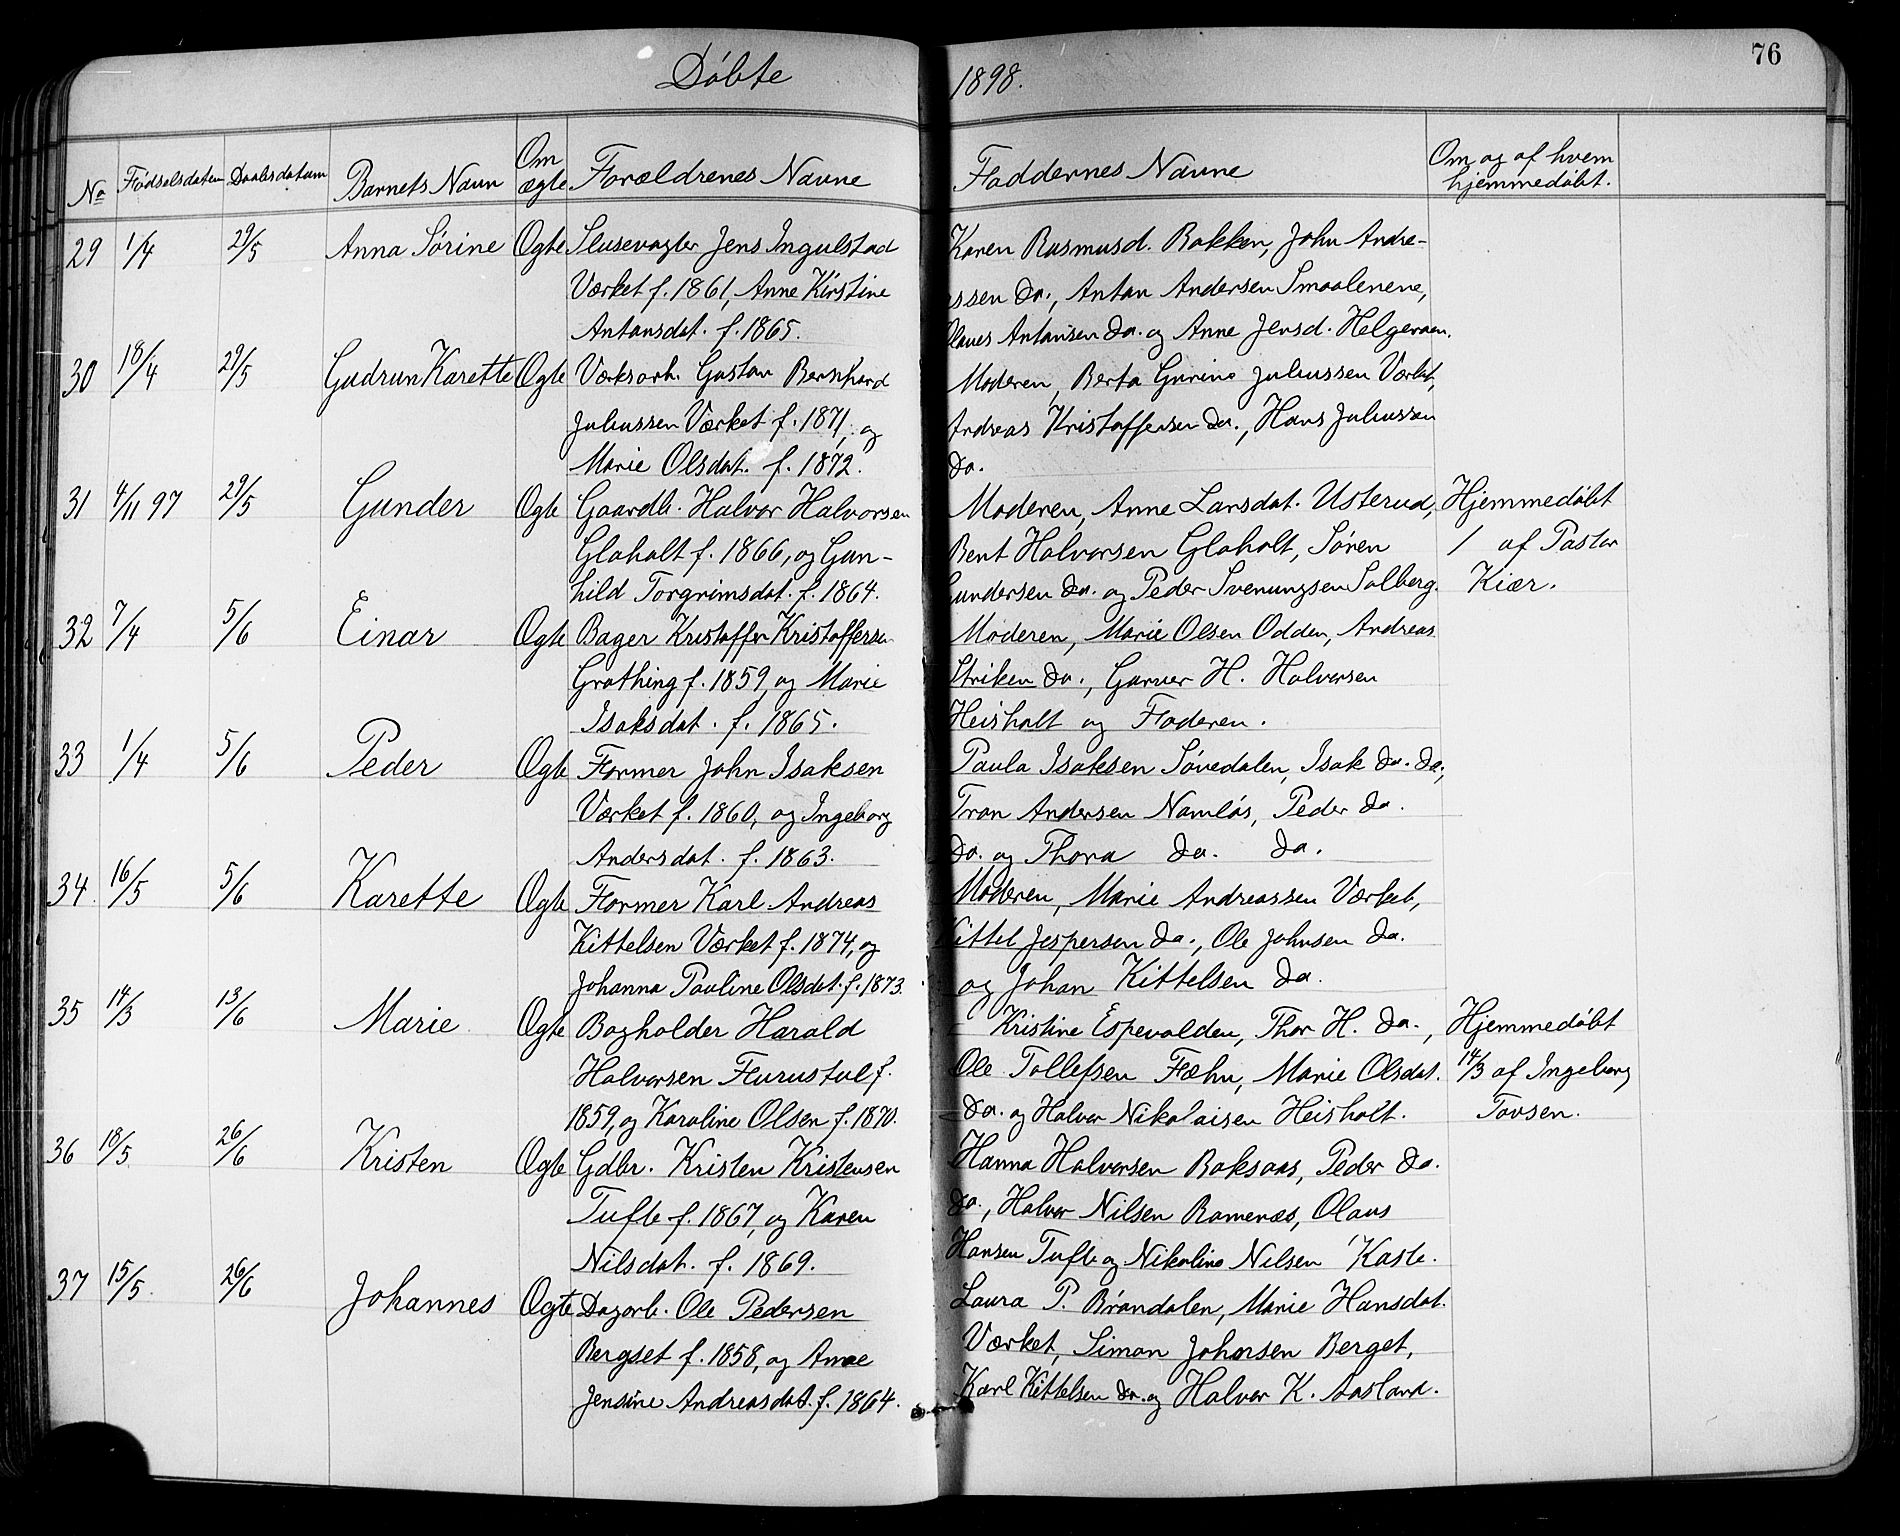 76
Døbte 1898.
No Fødselsdaten Daabsdatum Barnets Navn Om ægte Forældrenes Navne Faddernes Navne Om og af hvem hjemmedøbt.
29 1/4 29/5 Anna Sørine Ægte Slusevogter Jens Ingulstad Karen Rasmusd. Bakken, John Andre-
Værket f. 1861, Anne Kirstine ssen do., Anton Andersen Smaalenene,
Antonsdat. f. 1865. Olaves Antonsen do. og Anne Jensd. Helgeroen.
30 18/4 29/5 Gudrun Karette Ægte Værksarb. Gustav Bernhard Moderen, Berta Gurine Juliussen Værket,
Juliussen Værket f. 1871, og Andreas Kristoffersen do., Hans Juliussen
Marie Olsdat. f. 1872. do.
31 4/11 97 29/5 Gunder Ægte Gaardb. Halvor Halvorsen Moderen, Anne Larsdat. Usterud, Hjemmedøbt
Glaholt f. 1866, og Gun- Bent Halvorsen Glaholt, Søren / af Pastor
hild Torgrimsdat. f. 1864. Gundersen do. og Peder Svenungsen Solberg. Kiær.
32 7/4 5/6 Einar Ægte Bager Kristoffer Kristoffersen Moderen, Marie Olsen Odden, Andreas
Grothing f. 1859, og Marie Striken do., Garver H. Halvorsen
Isaksdat. f. 1865. Heisholt og Faderen.
33 1/4 5/6 Peder Ægte Former John Isaksen Paula Isaksen Søvedalen, Isak do. do.,
Værket f. 1860, og Ingeborg Tron Andersen Namløs, Peder do.
Andersdat. f. 1863. do. og Thora do. do.
34. 16/5 5/6 Karette Ægte Former Karl Andreas Moderen, Marie Andreassen Værket,
Kittelsen Værket f. 1874, og Kittel Jespersen do., Ole Johnsen do.
Johanna Pauline Olsdat. f. 1873. og Johan Kittelsen do.
35 14/3 13/6 Marie Ægte Bogholder Harald Kristine Espevolden, Thor H. do., Hjemmedøbt
Halvorsen Furustul f. Ole Tollefsen Fæhn, Marie Olsdat. 14/3 af Ingeborg
1859, og Karoline Olsen f. 1870. do. og Halvor Nikolaisen Heisholt. Tovsen.
36 18/5 26/6 Kristen Ægte Gdbr. Kristen Kristensen Hanna Halvorsen Boksaas, Peder do.
Tufte f. 1867, og Karen do., Halvor Nilsen Romenæs, Olaus
Nilsdat. f. 1869. Hansen Tufte og Nikoline Nilsen Kaste.
37 15/5. 26/6 Johannes Ægte Dagarb. Ole Pedersen Laura P. Brøndalen, Marie Hansdat.
Bergset f. 1858, og Anne Værket, Simon Johnsen Berget,
Jensine Andreasdat. f. 1864. Karl Kittelsen do. og Halvor K. Aasland.